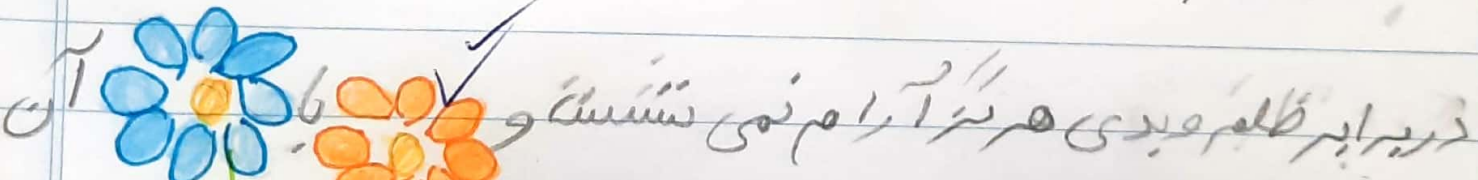 در برابر ظلم و بدی هرگز آرام نمی نشست و با آن